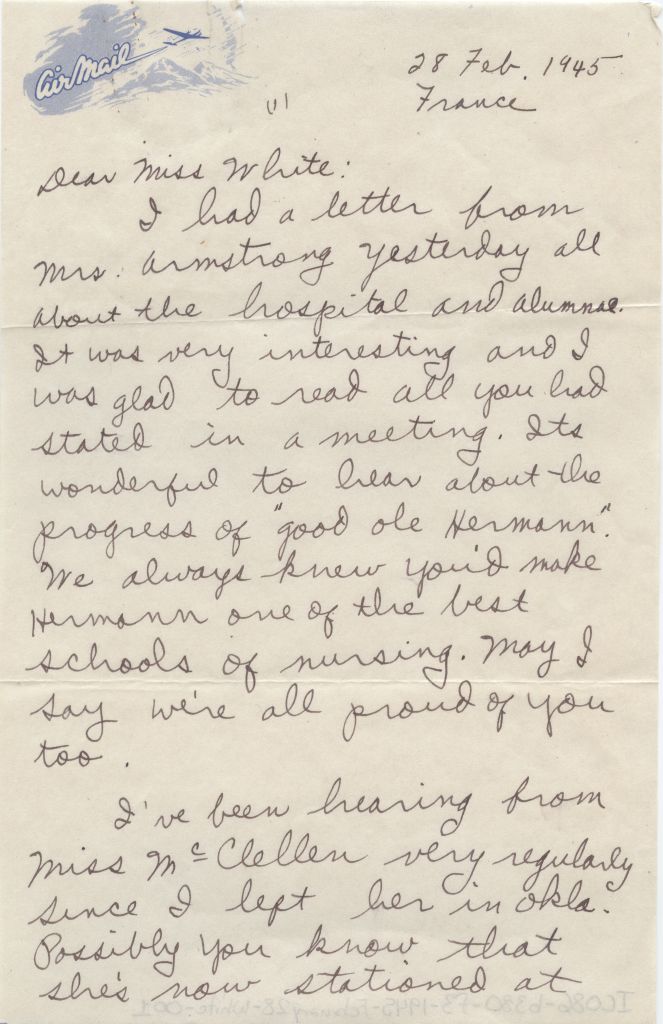 Air Mail
28 Feb. 1945
France
Dear Miss White:
I had a letter from
Mrs. Armstrong yesterday all
about the hospital and alumnae.
It was very interesting and I
was glad to read all you had
stated in a meeting. Its
wonderful to hear about the
progress of "good ole Hermann".
We always knew you'd make
Hermann one of the best
schools of nursing. May I
say we're all proud of you
too.
I've been hearing from
Miss McClellen very regularly
since I left her in Okla.
Possibly you know that
she's now stationed at
IC086-b380-F3-1945-February28-White-001